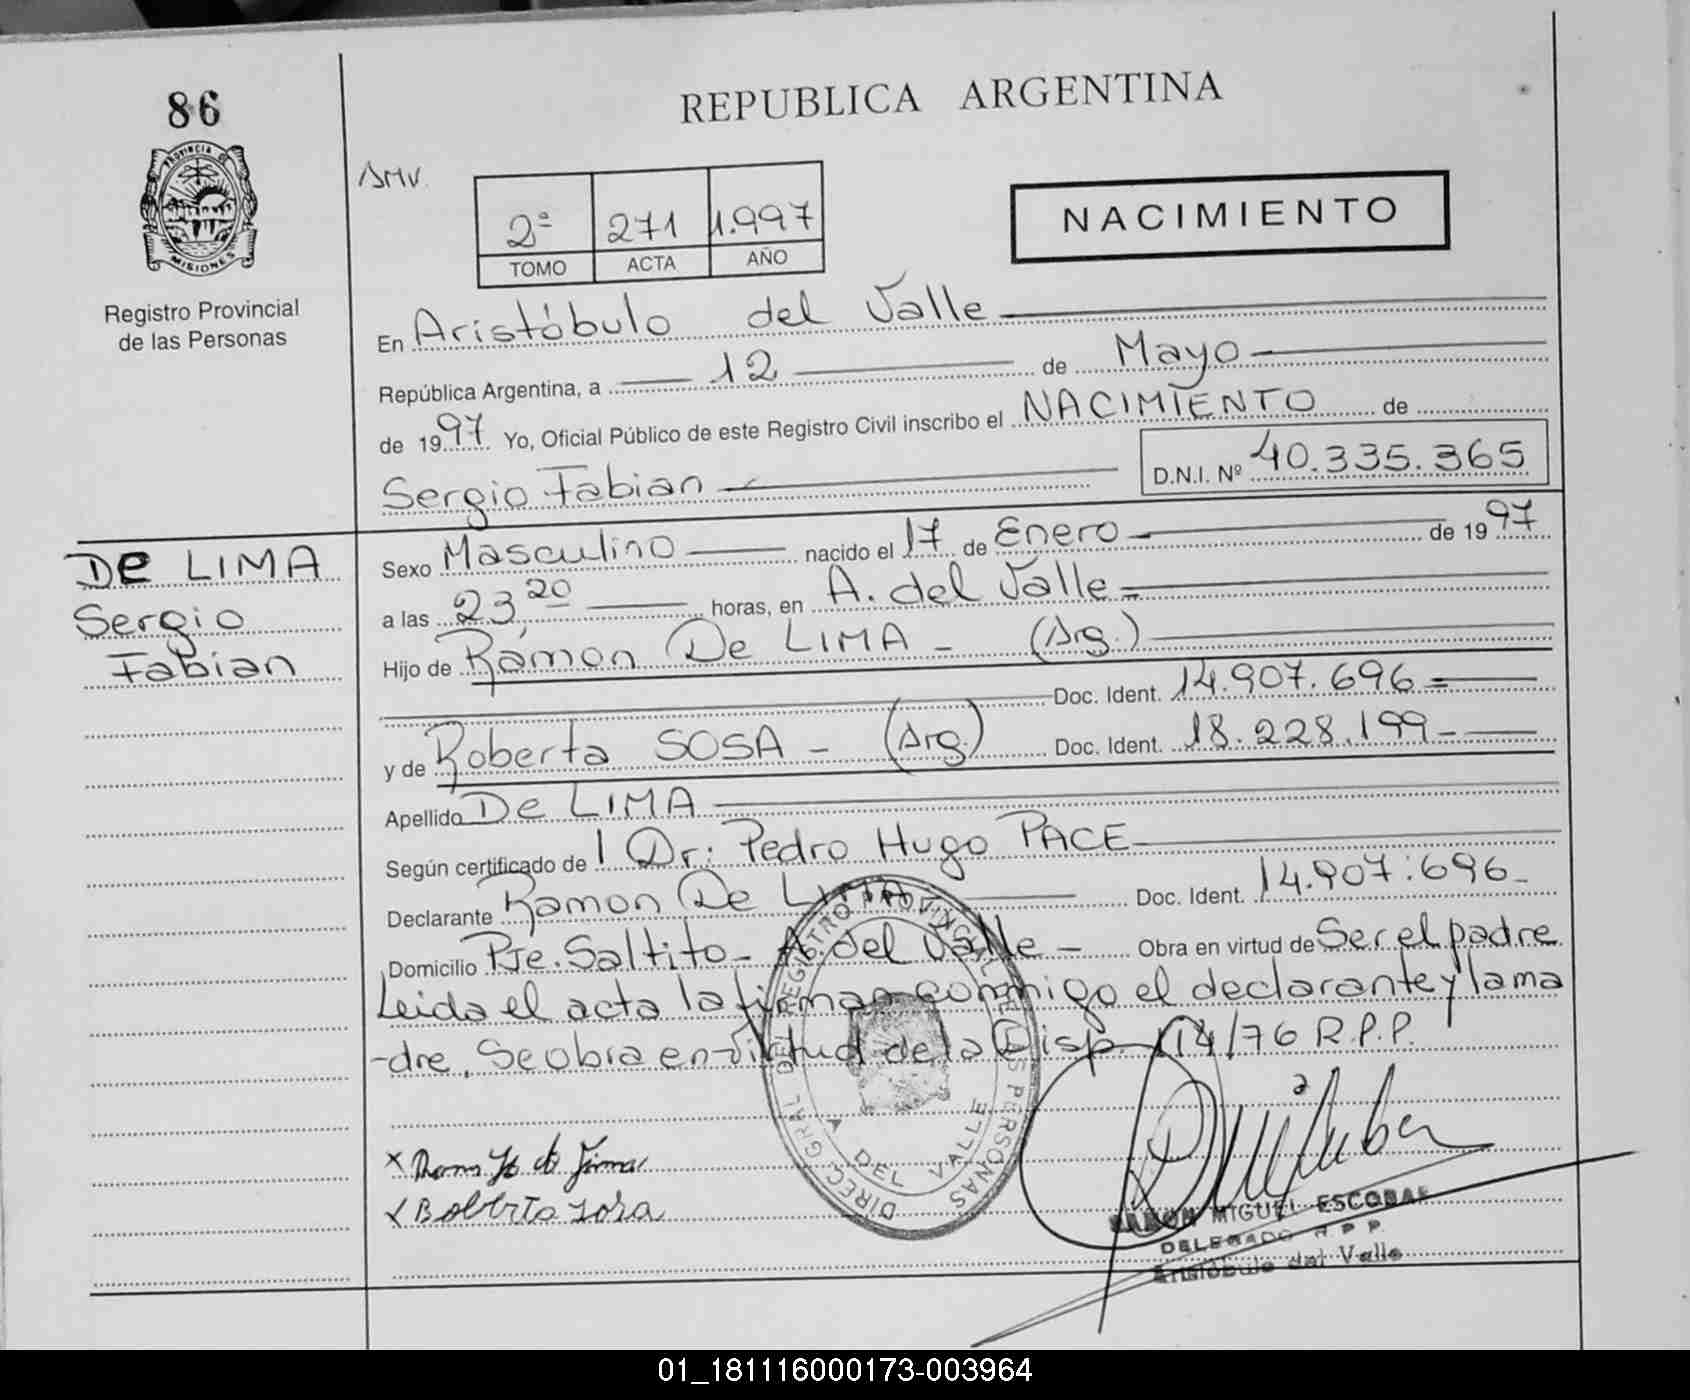 86
REPUBLICA ARGENTINA
PROVINCIA DE
MISIONES
Registro Provincial
de las Personas
2ª 271 1.997
TOMO ACTA AÑO
NACIMIENTO
En Aristóbulo del Valle
República Argentina, a 12 de Mayo
de 1997 Yo, Oficial Público de este Registro Civil inscribo el NACIMIENTO de
Sergio Fabian D.N.I. Nº 40.335.365
De LIMA
Sergio
Fabian
Sexo Masculino nacido el 17 de Enero de 1997
a las 23,20 horas, en A. del Valle
Hijo de Ramon De LIMA - (Arg.)
Doc. Ident. 14.907.696
y de Roberta SOSA - (Arg.) Doc. Ident. 18.228.199
Apellido De LIMA
Según certificado de Dr: Pedro Hugo PACE
Declarante Ramon De LIMA Doc. Ident. 14.907.696
Domicilio Pje. Saltito - A. del Valle - Obra en virtud de Ser el padre
Leida el acta la firman conmigo el declarante y la ma
-dre. Se obra en virtud de la Disp. 114/76 R.P.P.
DIREC. GRAL DEL REGISTRO PROVINCIAL DE LAS PERSONAS
A DEL VALLE
RAMON MIGUEL ESCOBAR
DELEGADO R.P.P.
Aristóbulo del Valle
01_181116000173-003964